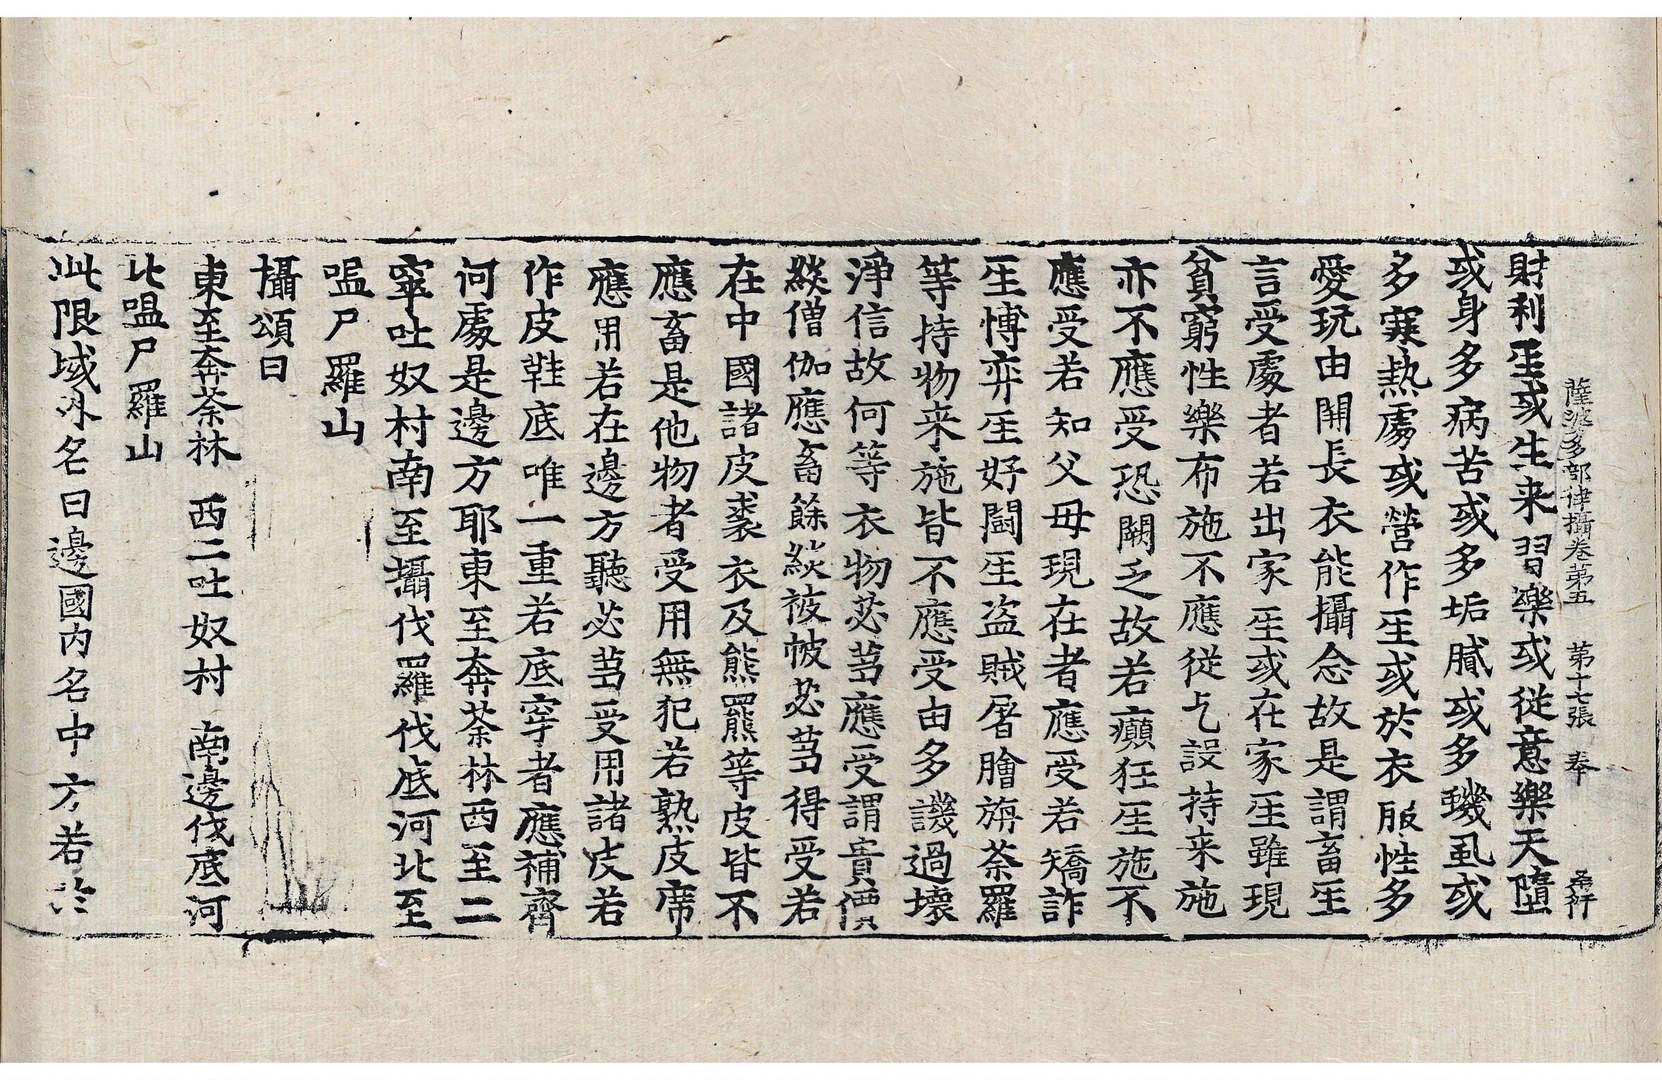 薩波多部律攝卷第五　第十七張　奉
財利至或生来習樂或從意樂天墮
或身多病苦或多垢膩或多蟣虱或
多寒熱處或營作至或於衣服性多
愛玩由開長衣能攝念故是謂畜至
言受處者若出家至或在家至雖現
貧窮性樂布施不應從乞設持来施
亦不應受恐闕乏故若癲狂至施不
應受若知父母現在者應受若矯詐
至博弈至好鬪至盗賊屠膾旃荼羅
等持物来施皆不應受由多譏過壞
淨信故何等衣物苾芻應受謂貴價
緂僧伽應畜餘緂被帔苾芻得受若
在中國諸皮裘衣及熊羆等皮皆不
應畜是他物者受用無犯若熟皮席
應用若在邊方聽苾芻受用諸皮若
作皮鞋底唯一重若底穿者應補齊
何處是邊方耶東至奔荼林西至二
窣吐奴村南至攝伐羅伐底河北至
嗢尸羅山
攝頌曰
東至奔荼林　西二吐奴村　南邊伐底河
北嗢尸羅山
此限域外名曰邊國内名中方若於